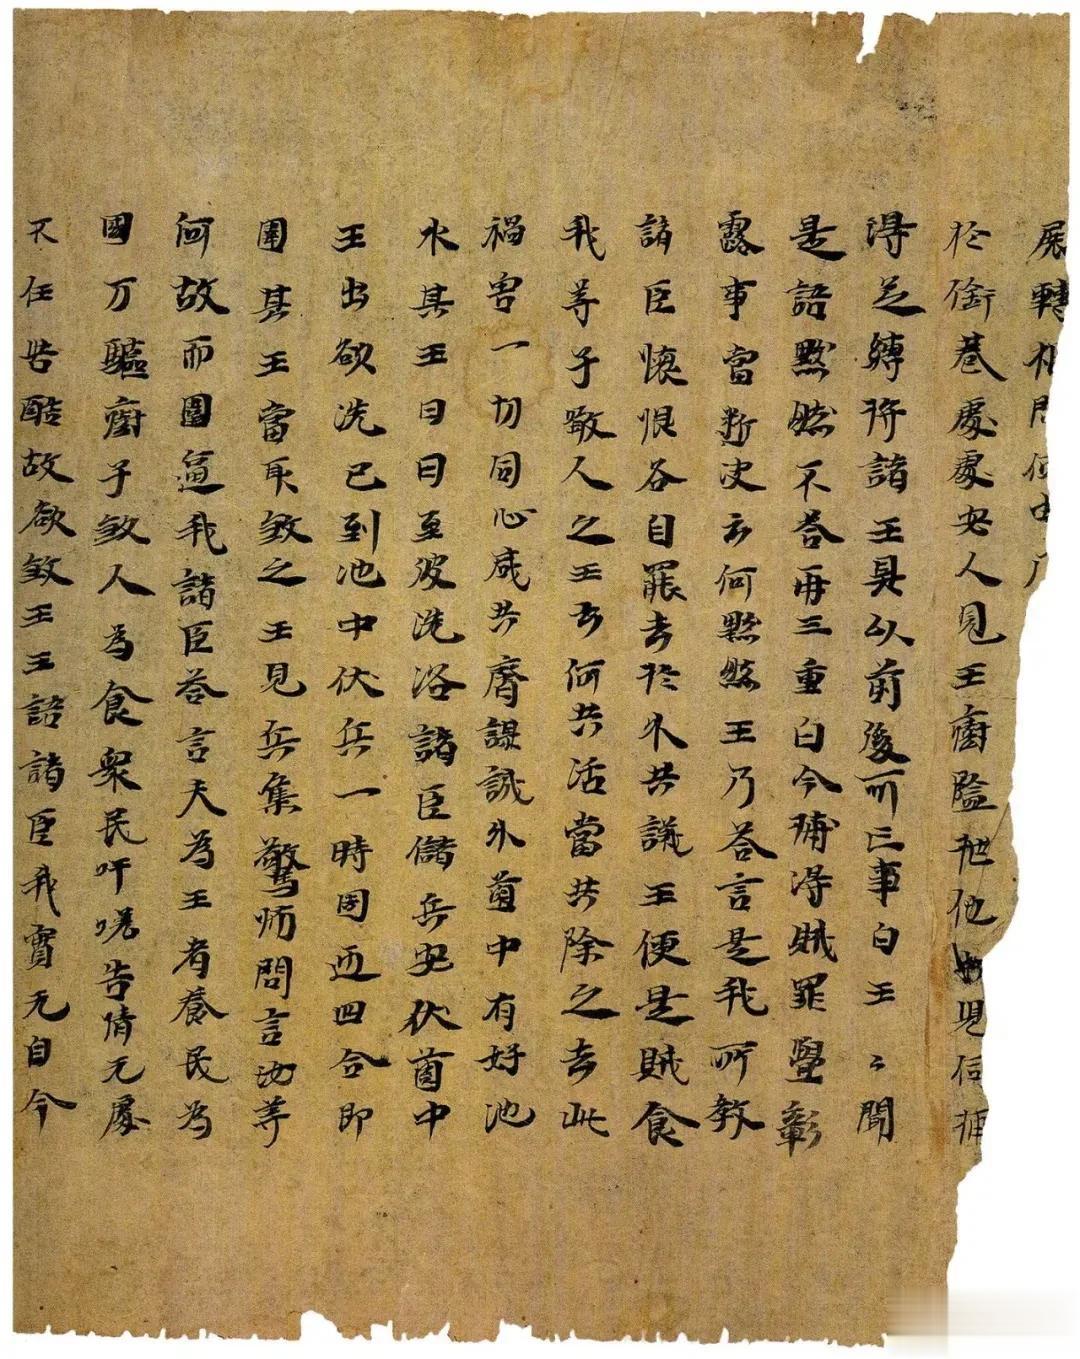 展轉相問何由
於街巷處處安人見王廚監抴他 見伺捕
得之縛將諸王具以前後所亡事白王〻聞
是語默然不荅再三重白今捕得賊罪舋彰
露事當斷决云何默然王乃荅言是我所教
諸臣懷恨各自罷去於外共議王便是賊食
我等子噉人之王云何共活當共除之去此
禍害一切同心咸共齊謀誡外薗中有好池
水其王日日至彼洗浴諸臣儲兵安伏薗中
王出欲洗已到池中伏兵一時周迊四合即
圍其王當取煞之王見兵集驚怖問言汝等
何故而圍逼我諸臣荅言夫為王者養民為
國方驅廚子煞人為食衆民吁嗟告情无處
不任苦酷故欲煞王王語諸臣我實无自今